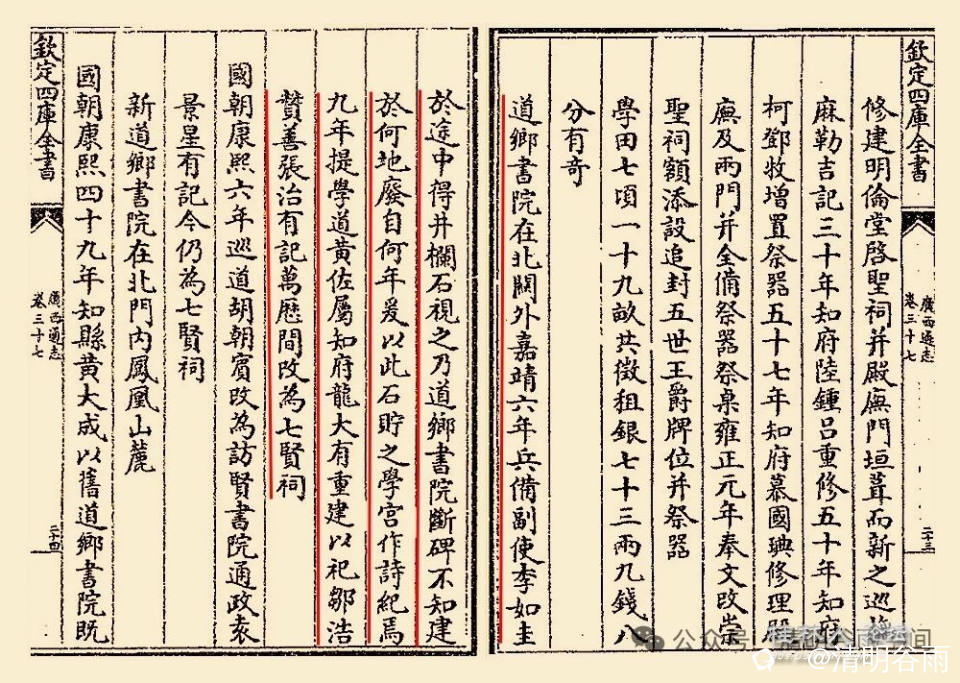 欽定四庫全書
廣西通志
卷三十七
二十三
修建明倫堂啓聖祠并殿廡門垣葺而新之巡
麻勒吉記三十年知府陸鍾吕重修五十年知府
柯鄧牧增置祭器五十七年知府慕國琠修理殿
廡及兩門并全備祭器祭桌雍正元年奉文改崇
聖祠額添設追封五世王爵牌位并祭器
學田七項一十九畝共徵租銀七十三兩九錢八
分有奇
道鄉書院在北關外嘉靖六年兵備副使李如圭
於途中得井欄石視之乃道鄉書院斷碑不知建
於何地廢自何年爰以此石貯之學宮作詩紀焉
九年提學道黄佐屬知府龍大有重建以祀鄒浩
贊善張治有記萬歷間改為七賢祠
國朝康熙六年巡道胡朝賓改為訪賢書院通政袁
景星有記今仍為七賢祠
新道鄉書院在北門内鳳凰山麓
國朝康熙四十九年知縣黄大成以舊道鄉書院既
欽定四庫全書
廣西通志
卷三十七
二十四
公众号
@清明谷雨